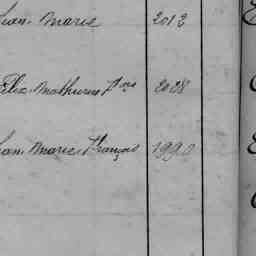 Jean Marie 2012
Félix Mathurin Pre 2028
Jean Marie François 1990